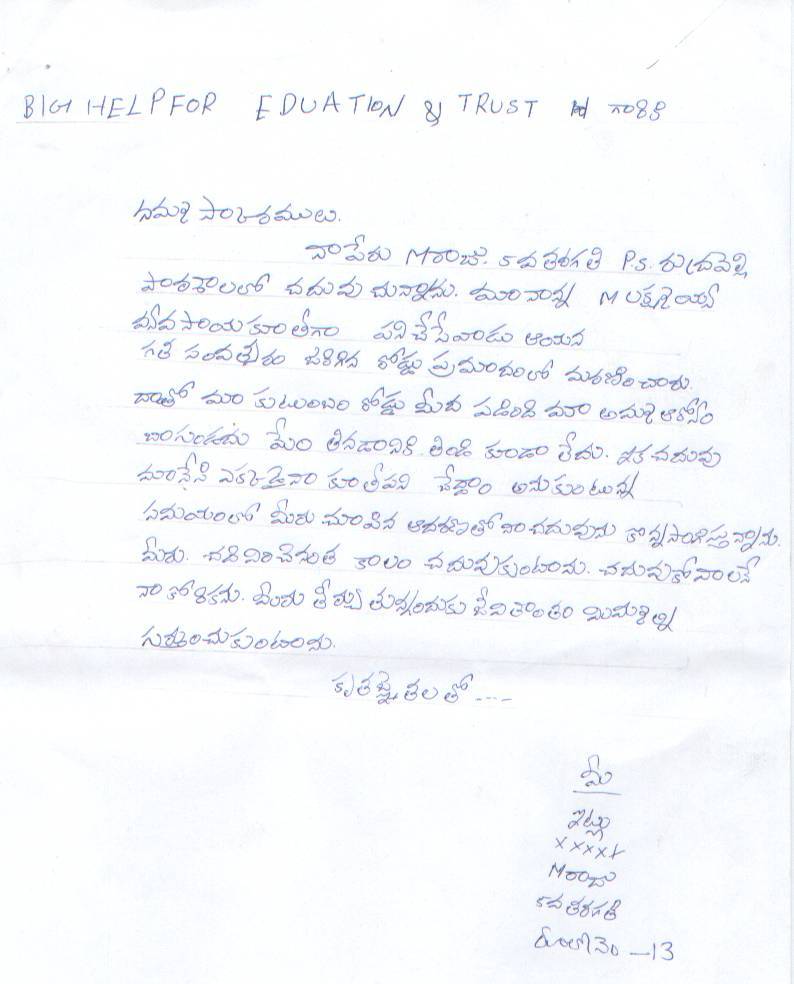 BIG HELP FOR EDUATION & TRUST గారికి
నమస్కారములు.
నాపేరు M రాజు. 5వ తరగతి P.S. రుద్రవెల్లి
పాఠశాలలో చదువు చున్నాను. మా నాన్న M లక్ష్మయ్య
వ్యవసాయ కూలీగా పనిచేసేవాడు ఆయన
గత సంవత్సరం జరిగిన రోడ్డు ప్రమాదంలో మరణించారు.
దాంతో మా కుటుంబం రోడ్డు మీద పడింది మా అమ్మ ఆరోగ్యం
బాగుండదు మేం తినడానికి తిండి కూడా లేదు. ఇక చదువు
మానేసి ఎక్కడైనా కూలీపని చేద్దాం అనుకుంటున్న
సమయంలో మీరు చూపిన ఆదరణతో నా చదువును కొనసాగిస్తున్నాను.
మీరు. చదివించినంత కాలం చదువుకుంటాను. చదువుకోవాలనే
నా కోరికను. మీరు తీర్చు తున్నందుకు జీవితాంతం మిమ్మల్ని
గుర్తుంచుకుంటాను.
కృతజ్ఞతలతో ----
మీ
ఇట్లు
xxxxx
M రాజు
5వ తరగతి
రూల్ నెం - 13